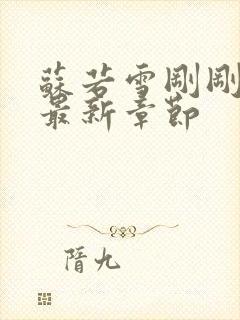 蘇若雪剛剛
最新章節
隋九